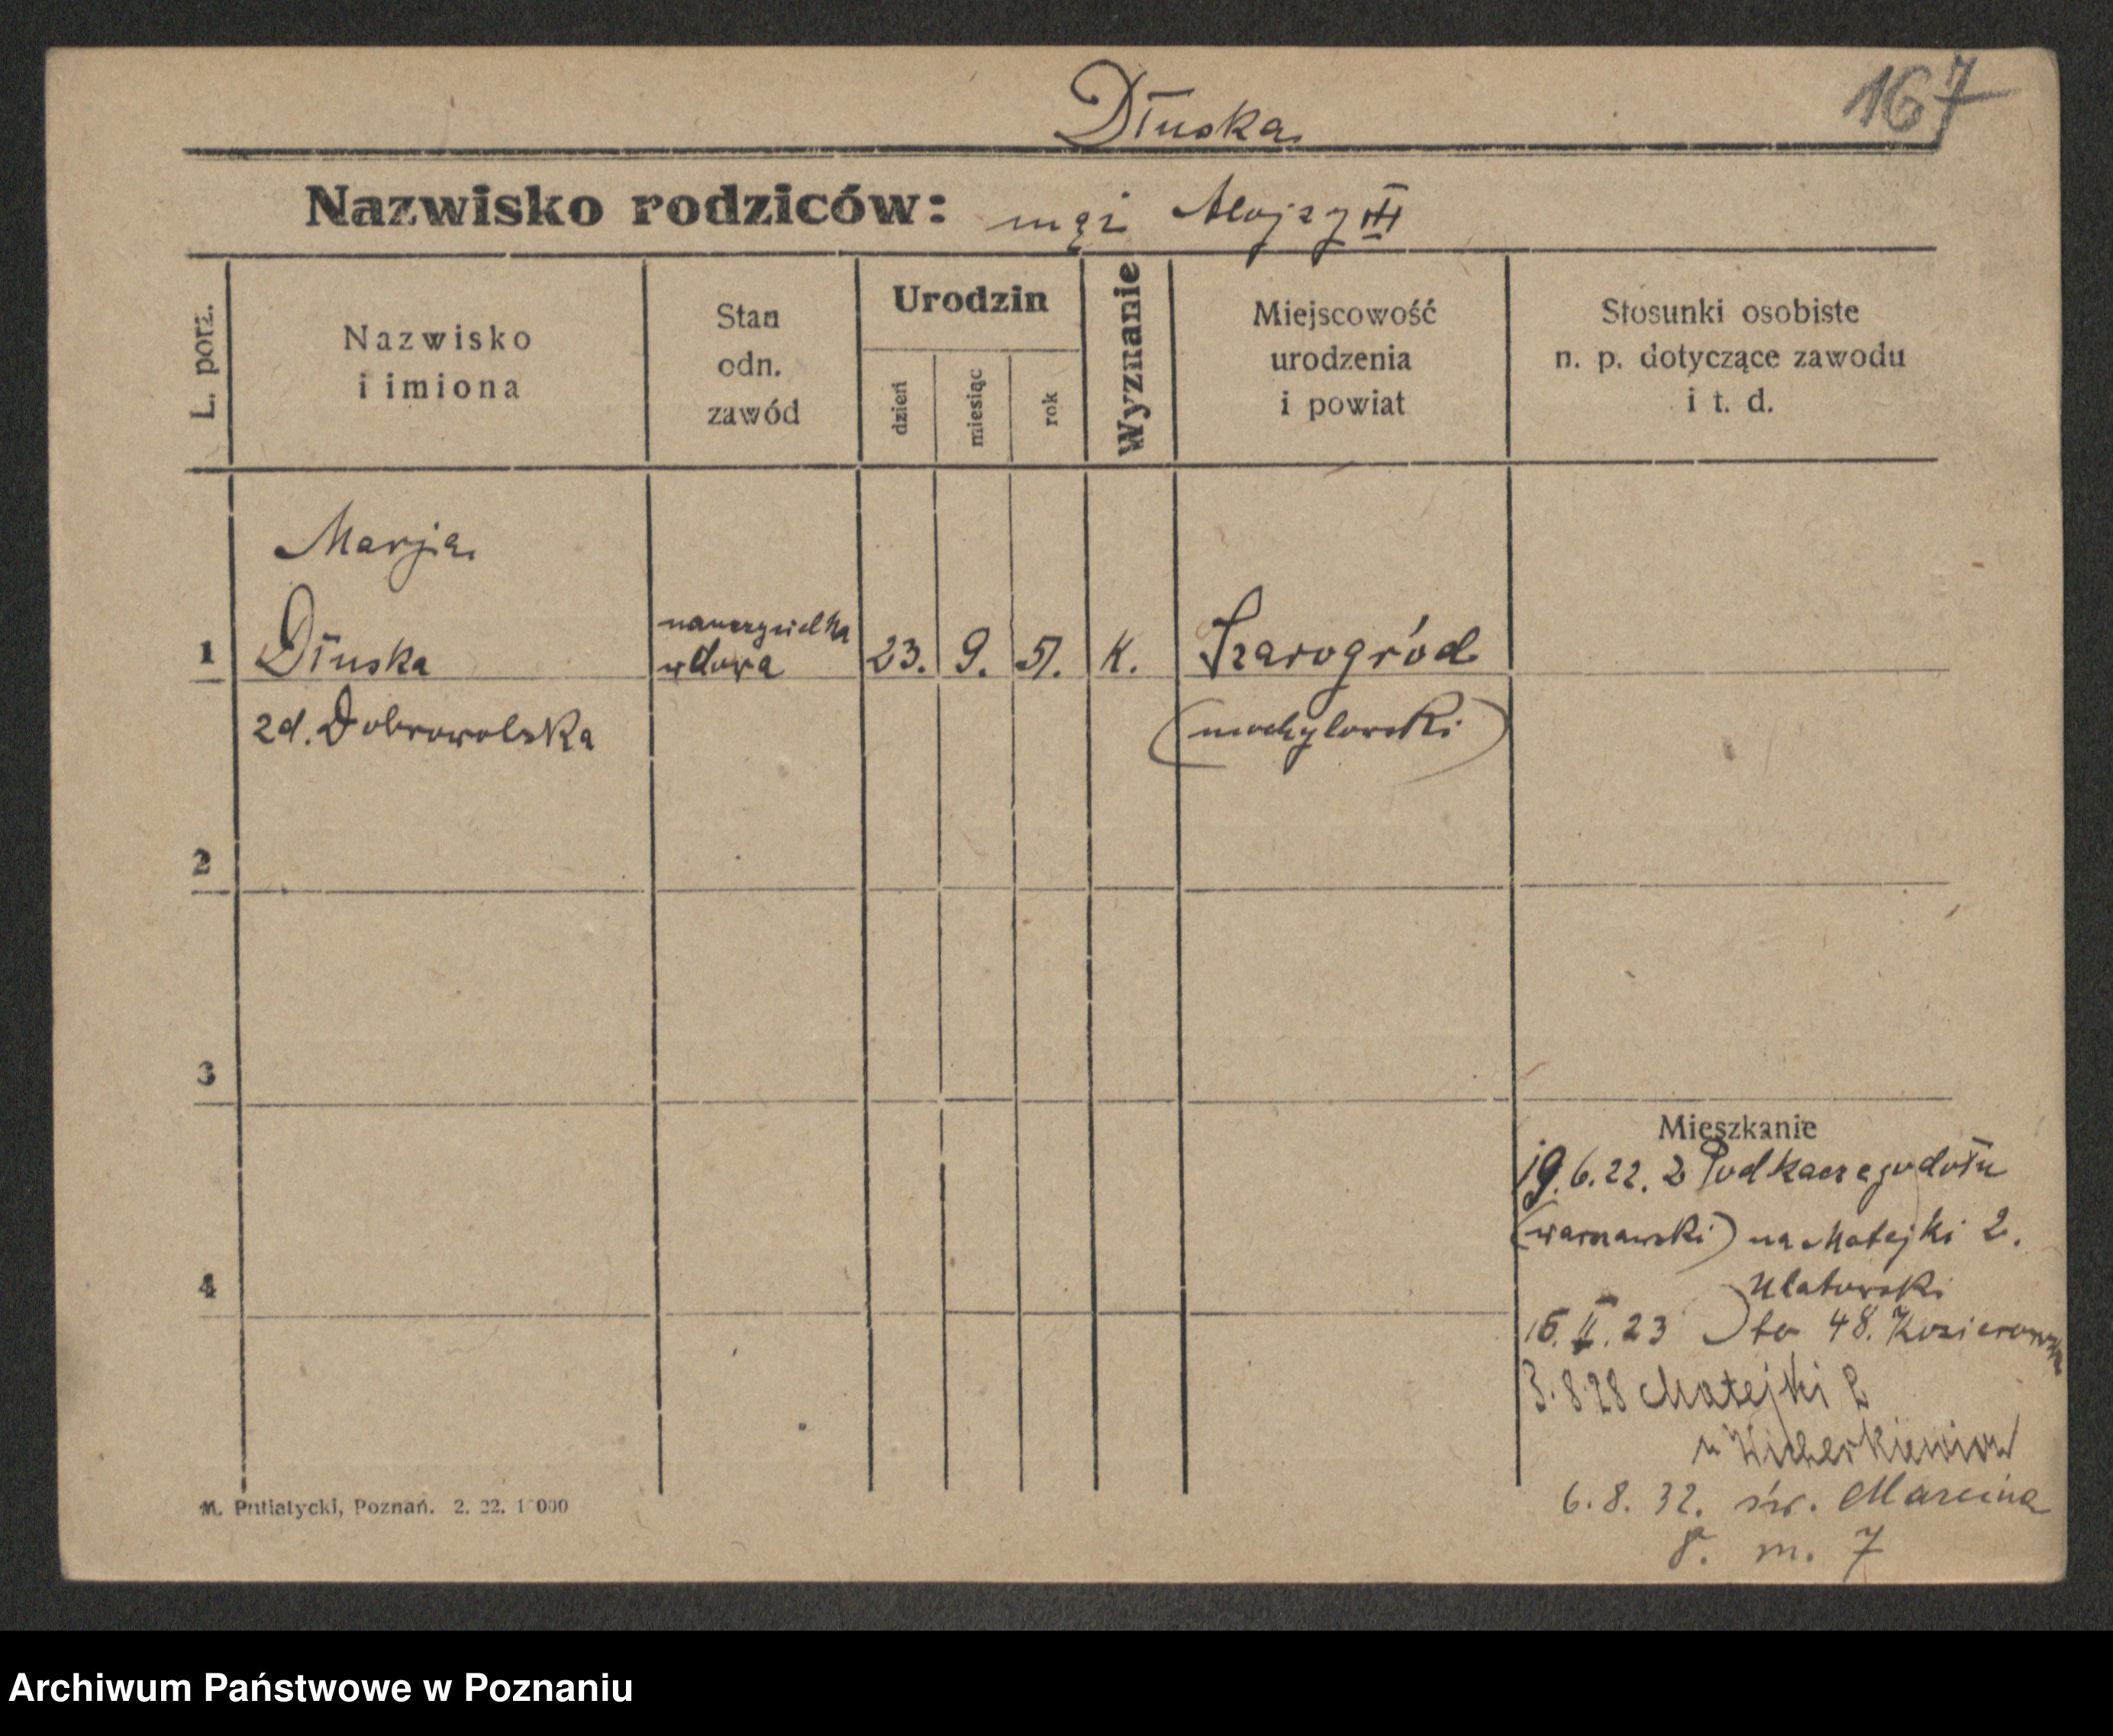 Dłuska
167
Nazwisko rodziców: mąż Alojzy
L. porz.
Nazwisko
i imiona
Stan
odn.
zawód
Urodzin
dzień
miesiąc
rok
Wyznanie
Miejscowość
urodzenia
i powiat
Stosunki osobiste
n. p. dotyczące zawodu
i t. d.
Marja
1 Dłuska
nauczycielka
wdowa
23. 9. 51. K. Szarogród
zd. Dobrowolska
(mochylowski)
2
3
4
Mieszkanie
19.6.22. z Podkaczegodołu
(warszawski) na Matejki 2.
Ulatowski
15. II. 23 48.
3.8.28 Matejki 2
u
6.8.32. św. Marcina
8. m. 7
M. Putiatycki, Poznań. 2. 22. 1 000
Archiwum Państwowe w Poznaniu